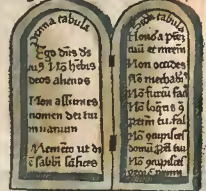 prima tabula
Ego dns ds
tuus Nō hēbis
deos alienos
Non assumes
nomen dei tui
in uanum
Memēto ut di
ē sabbi sāfices
scda tabula
Honora p̄rē
tuū et mr̄em
Non occides
Nō mechab'
Nō furtū fac
Nō loq̄ris 9
p̄ximū tu. fal
Nō 9cupisces
domū p̄xi tui
Nō 9cupisces